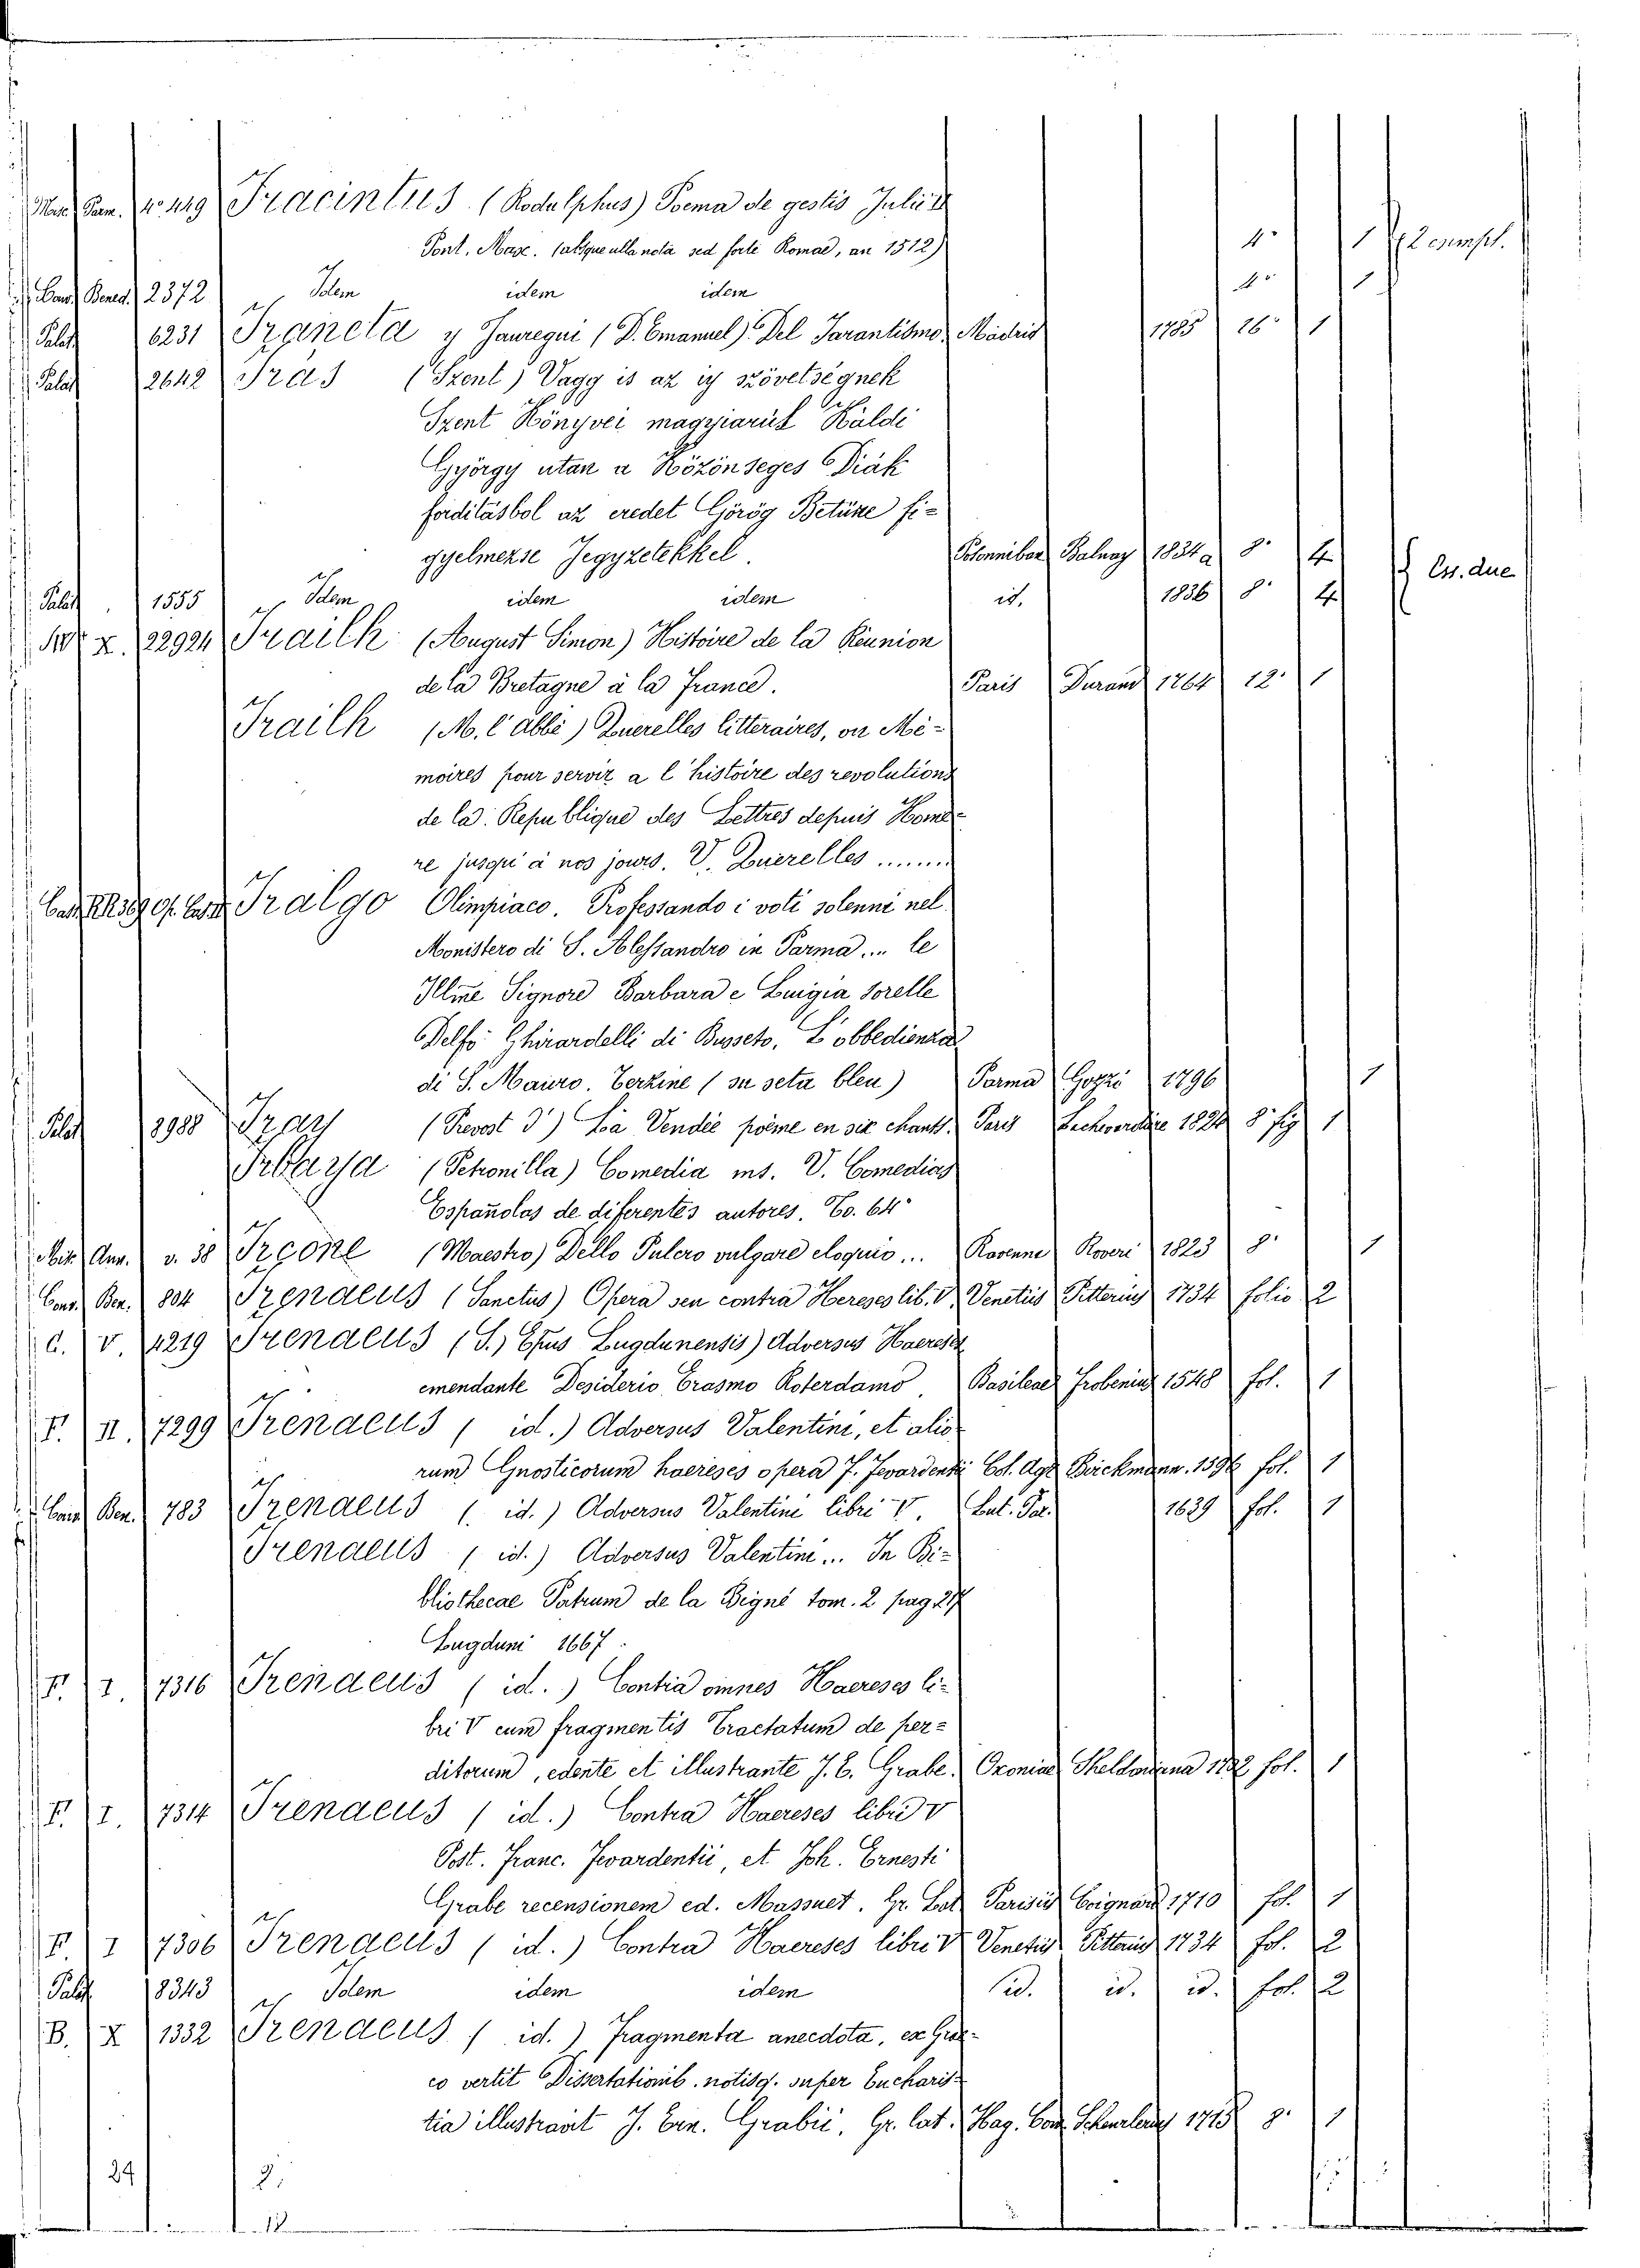 Mss. Parm. n.° 449 Iracintus (Rodulphus) Poema de gestis Julii II
Pont. Max. (absque ulla nota sed forte Romae, an 1512) 4° 1 2 esempl.
Cons. Bened. 2372 Idem idem idem 4° 1
Palat 6231 Irañeta y Jauregui (D. Emanuel) Del Tarantismo Madrid 1785 16° 1
Palat 2642 Iras (Szent) Vagy is az iy szövetségnek
Szent Könyvei magyiarúl Káldi
György utan a Közönséges Diák
forditásbol az eredet Görög Betüre fi=
gyelmezse Jegyzetekkel. Posonniban Balnay 1834 8° 4
Palat. 1555 Idem idem idem id. 1836 8° 4 Es. due
X. 22924 Irailh (August Simon) Histoire de la Réunion
de la Bretagne à la France. Paris Durand 1764 12° 1
Irailh (M. l'abbé) Querelles litteraires, ou Mé=
moires pour servir a l'histoire des revolutions
de la Republique des Lettres depuis Home=
re jusqu'à nos jours. V. Querelles .......
Iralgo Olimpiaco. Professando i voti solenni nel
Monistero di S. Alessandro in Parma ... le
Illme Signore Barbara e Luigia sorelle
Delfo Ghirardelli di Busseto, L'obbedienza
di S. Mauro. Terzine (su seta bleu) Parma Gozzi 1796 1
Palat 8988 Iray (Prevost D') La Vendée poème en six chants. Paris Lechverdière 1824 8° fig 1
Irbaya (Petronilla) Comedia ms. V. Comedias
Españolas de diferentes autores. To. 64°
Misc. Ann. v. 38 Ircone (Maestro) Dello Pulcro vulgare eloquio ... Ravenna Roveri 1823 8° 1
Cons. Ben. 804 Irenaeus (Sanctus) Opera seu contra Hereses lib. V. Venetiis Pitterius 1734 folio 2
C. V. 4219 Irenaeus (S.) Epus Lugdunensis) Adversus Haereses
emendante Desiderio Erasmo Roterdamo. Basileae Frobenius 1548 fol. 1
F. II. 7299 Irenaeus (id.) Adversus Valentini, et alio=
rum Gnosticorum haereses opera F. Fevardentii Col. Agr. Birckmann. 1596 fol. 1
Cons. Ben. 783 Irenaeus (id.) Adversus Valentini libri V. Lut. Par. 1639 fol. 1
Irenaeus (id.) Adversus Valentini ... In Bi=
bliothecae Patrum de la Bigne tom. 2 pag 217
Lugduni 1667.
F. I. 7316 Irenaeus (id.) Contra omnes Haereses li=
bri V cum fragmentis Tractatum de per=
ditorum, edente et illustrante J. E. Grabe. Oxoniae Sheldoniana 1702 fol. 1
F. I. 7314 Irenaeus (id.) Contra Haereses libri V
Post. Franc. Fevardentii, et Joh. Ernesti
Grabe recensionem ed. Massuet. Gr. Lat. Parisiis Coignard 1710 fol. 1
F. I 7306 Irenaeus (id.) Contra Haereses libri V Venetiis Pitterius 1734 fol. 2
Palat 8343 Idem idem idem id. id. id. fol. 2
B. X 1332 Irenaeus (id.) Fragmenta anecdota, ex Grae=
co vertit Dissertationib. notisq. super Eucharis=
tia illustravit J. Ern. Grabii. Gr. lat. Hag. Com. Scheurleruz 1715 8° 1
24 2.
12